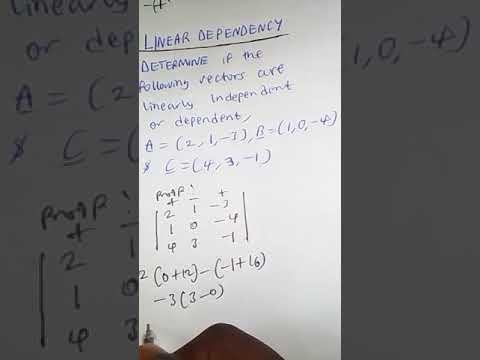 LINEAR DEPENDENCY
DETERMINE if the
following vectors are
linearly Independent
or dependent,
A = (2, 1, -3), B = (1, 0, -4)
& C = (4, 3, -1)
Proof:
+ - +
2 1 -3
1 0 -4
4 3 -1
2(0+12) - (-1+16)
-3(3-0)